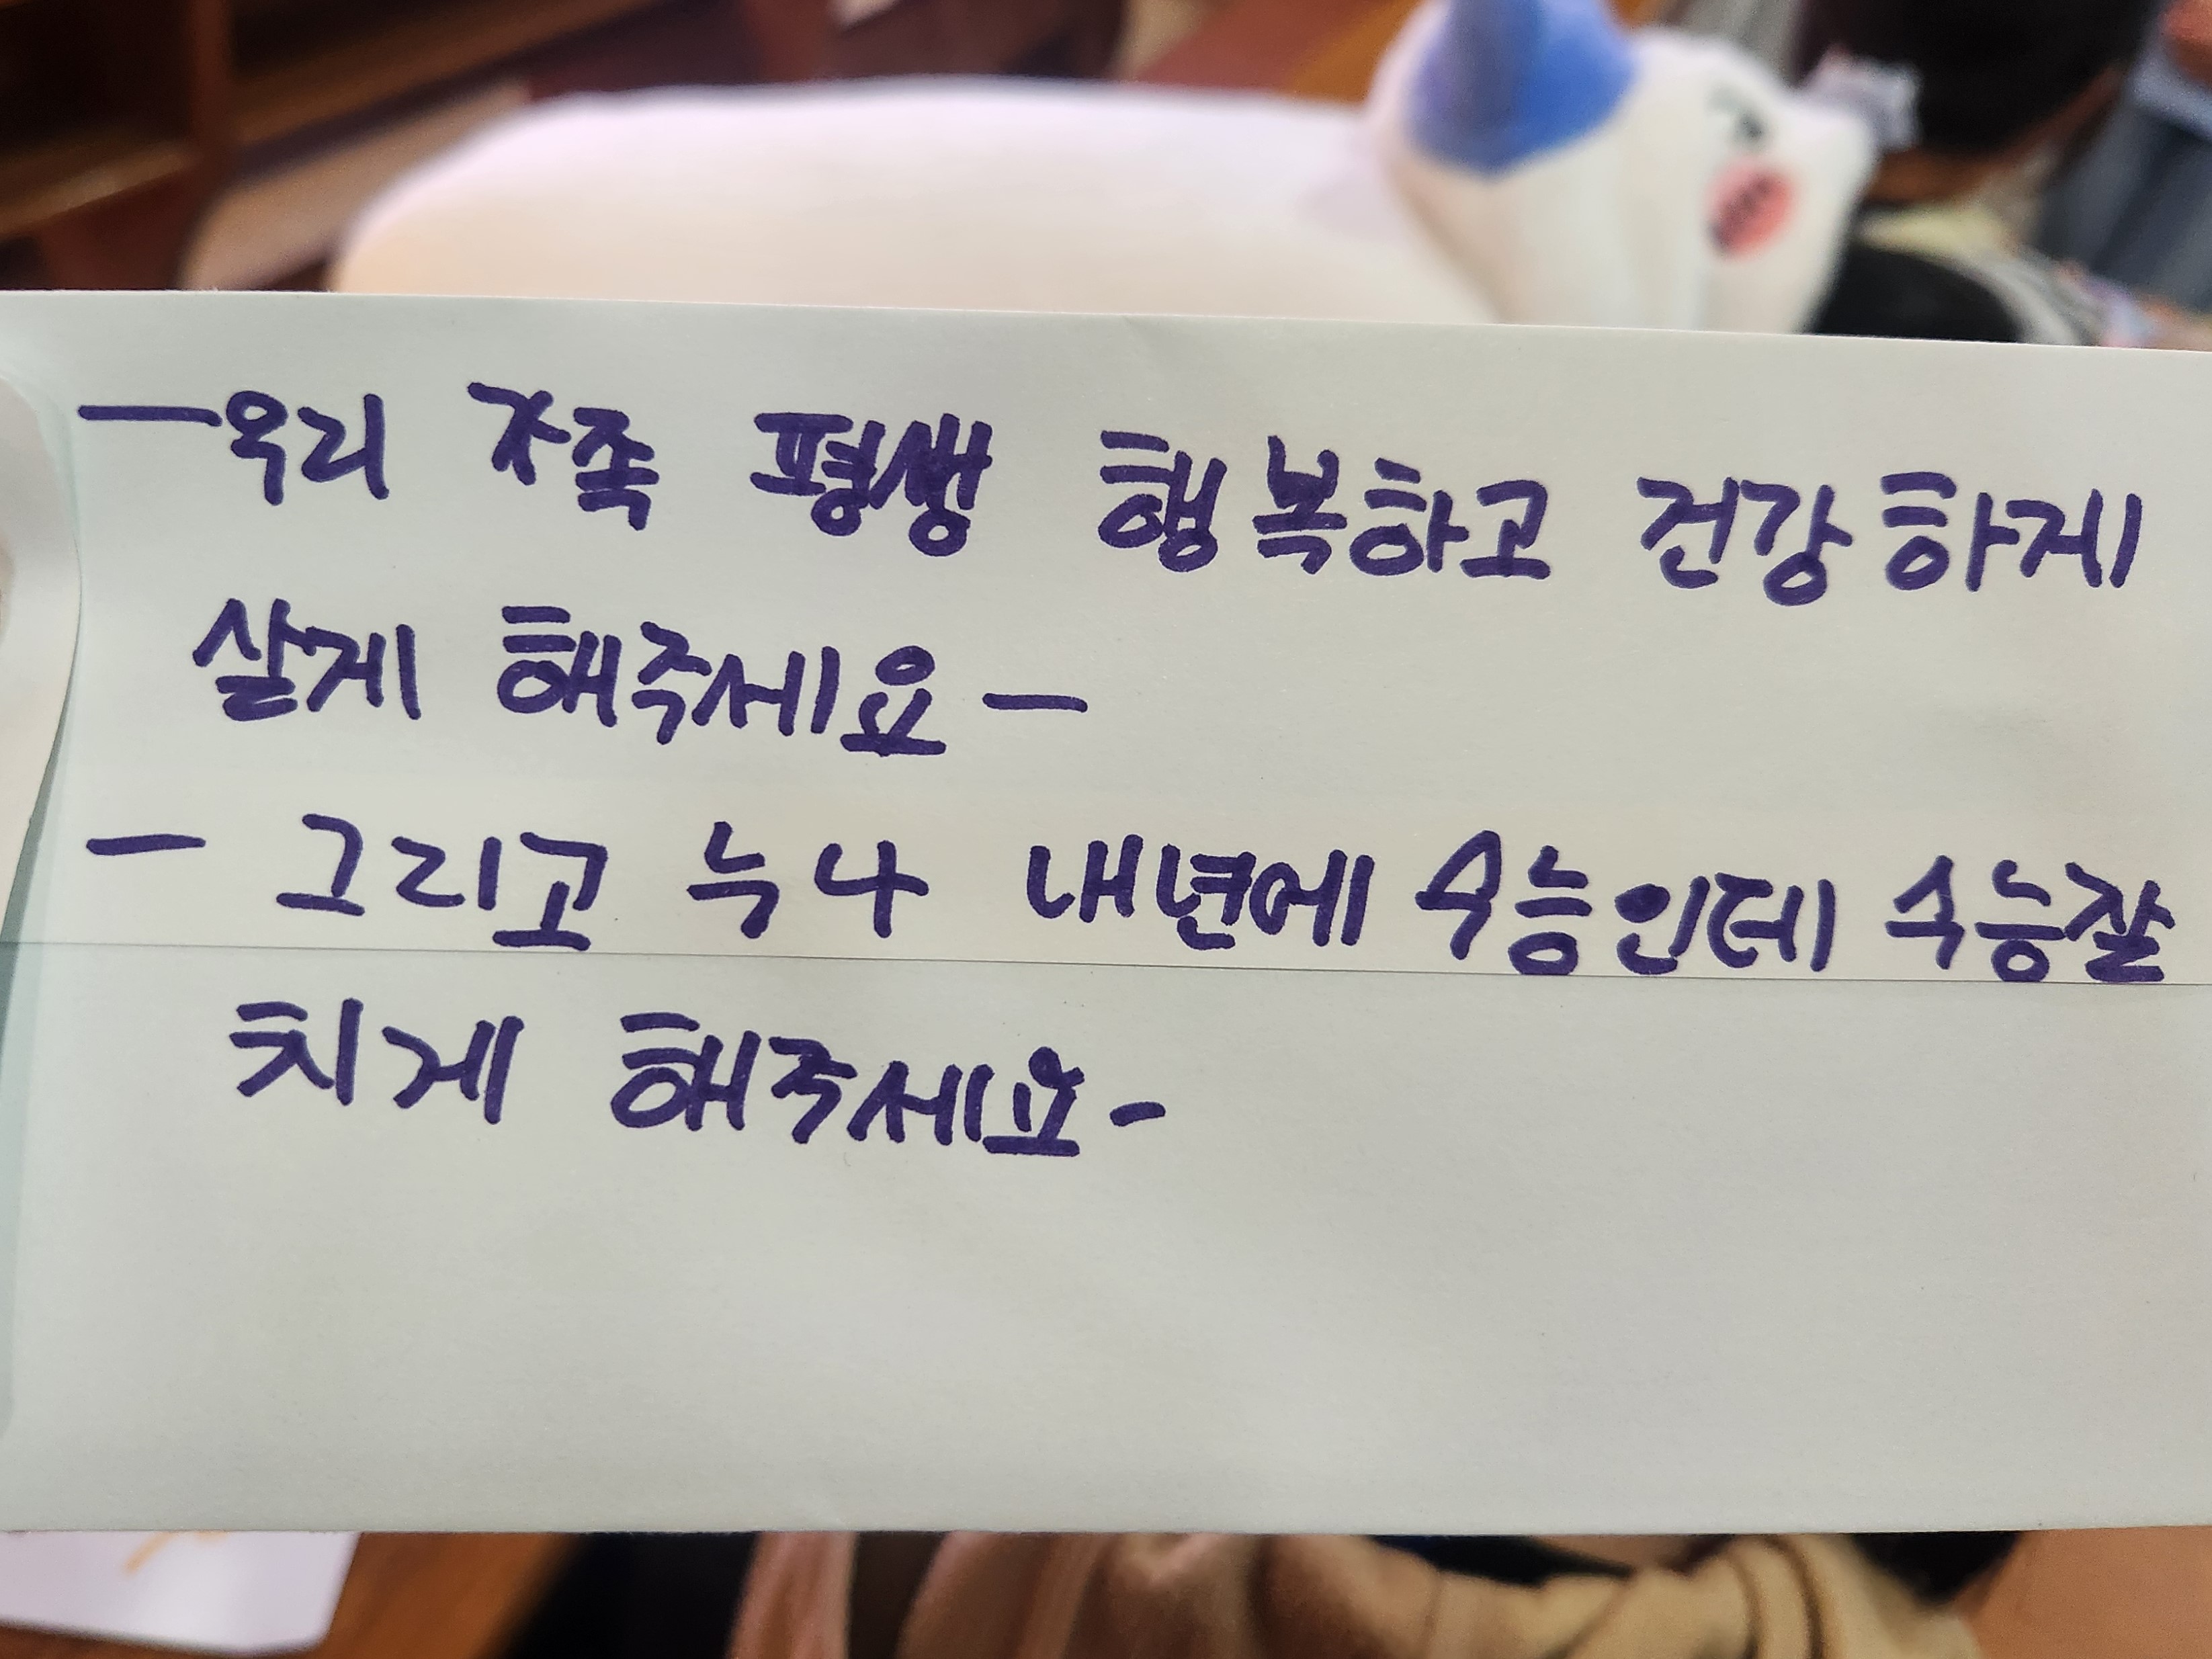 —우리 가족 평생 행복하고 건강하게
살게 해주세요—
— 그리고 누나 내년에 수능인데 수능잘
치게 해주세요-